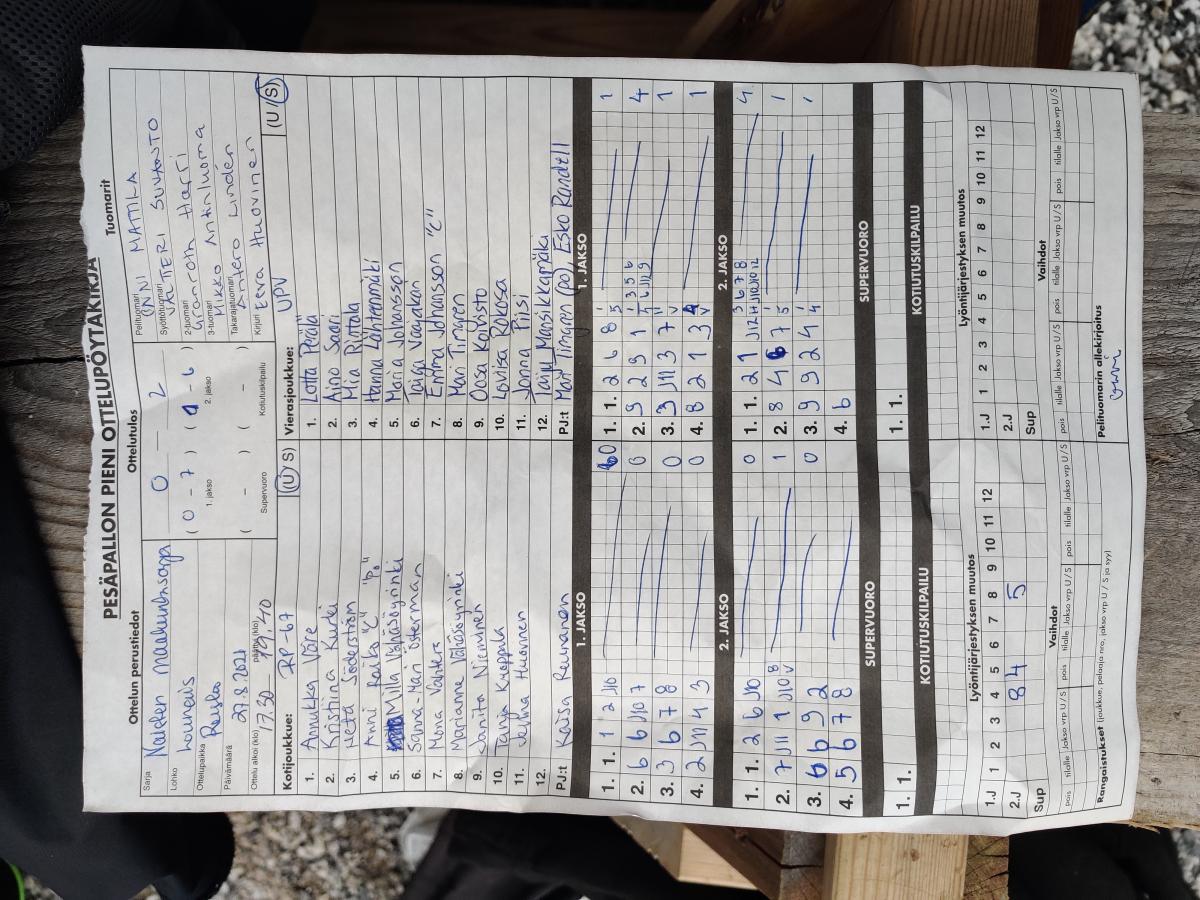 PESÄPALLON PIENI OTTELUPÖYTÄKIRJA
Ottelun perustiedot
Ottelutulos
Tuomarit
Sarja Naisten maakuntasarja
Lohko Lounais
Ottelupaikka
Päivämäärä 27.8.2021
Ottelu alkoi (klo) 17.30 päättyi (klo) 19.40
0 – 2
( 0 - 7 ) ( 1 - 6 )
1. jakso 2. jakso
( - ) ( - )
Supervuoro Kotiutuskilpailu
Pelituomari MATTILA
Syöttötuomari
2-tuomari Granroth Harri
3-tuomari Mikko Antinluoma
Takarajatuomari Antero Lindén
Kirjuri Eeva Huovinen
Kotijoukkue: RP-67 (U/S)
1. Annukka Väre
2. Kristiina Kurki
3. Neta Söderström
4. Anni Raika "C"
5. Milla Vähäsöyrinki
6. Sanna-Mari Österman
7. Mona Valters
8. Marianne Vähäsöyrinki
9. Janita Nieminen
10. Tanja Kroppu
11. Jenna Huovinen
12.
PJ:t Kaisa Reunanen
Vierasjoukkue: UPV (U/S)
1. Lotta Perälä
2. Aino Saari
3. Mia Rintala
4. Hanna Lähteenmäki
5. Maria Johansson
6. Taija Vaarakan
7. Emma Johansson "C"
8. Mari Timgren
9. Oosa Koivisto
10. Lovisa Roksa
11. Jonna Piisi
12. Tarju Mansikkamäki
PJ:t Mari Timgren (po), Esko Randell
1. JAKSO
1. 1. 1 2 J10
2. 6 6 J10 7
3. 3 6 7 8
4. 2 J11 4 3
1. JAKSO
0 1. 1. 2 6 8 1
0 2. 9 2 9 1 4
0 3. 3 J11 3 7 1
0 4. 8 2 1 3 1
2. JAKSO
1. 1. 2 6 J10
2. 7 J11 1 J10 8
3. 6 6 9 2
4. 5 6 7 8
2. JAKSO
0 1. 1. 2 1 J12 4
1 2. 8 4 6 7 1
0 3. 9 9 2 4 1
4. 6
SUPERVUORO
1. 1.
KOTIUTUSKILPAILU
SUPERVUORO
1. 1.
KOTIUTUSKILPAILU
Lyöntijärjestyksen muutos
1 2 3 4 5 6 7 8 9 10 11 12
1.J
2.J 8 4 5
Sup
Lyöntijärjestyksen muutos
1 2 3 4 5 6 7 8 9 10 11 12
1.J
2.J
Sup
Vaihdot
pois tilalle Jakso vrp U / S pois tilalle Jakso vrp U / S pois tilalle Jakso vrp U / S
Vaihdot
pois tilalle Jakso vrp U / S pois tilalle Jakso vrp U / S pois tilalle Jakso vrp U / S
Rangaistukset (joukkue, pelaaja nro, jakso vrp U / S ja syy)
Pelituomarin allekirjoitus